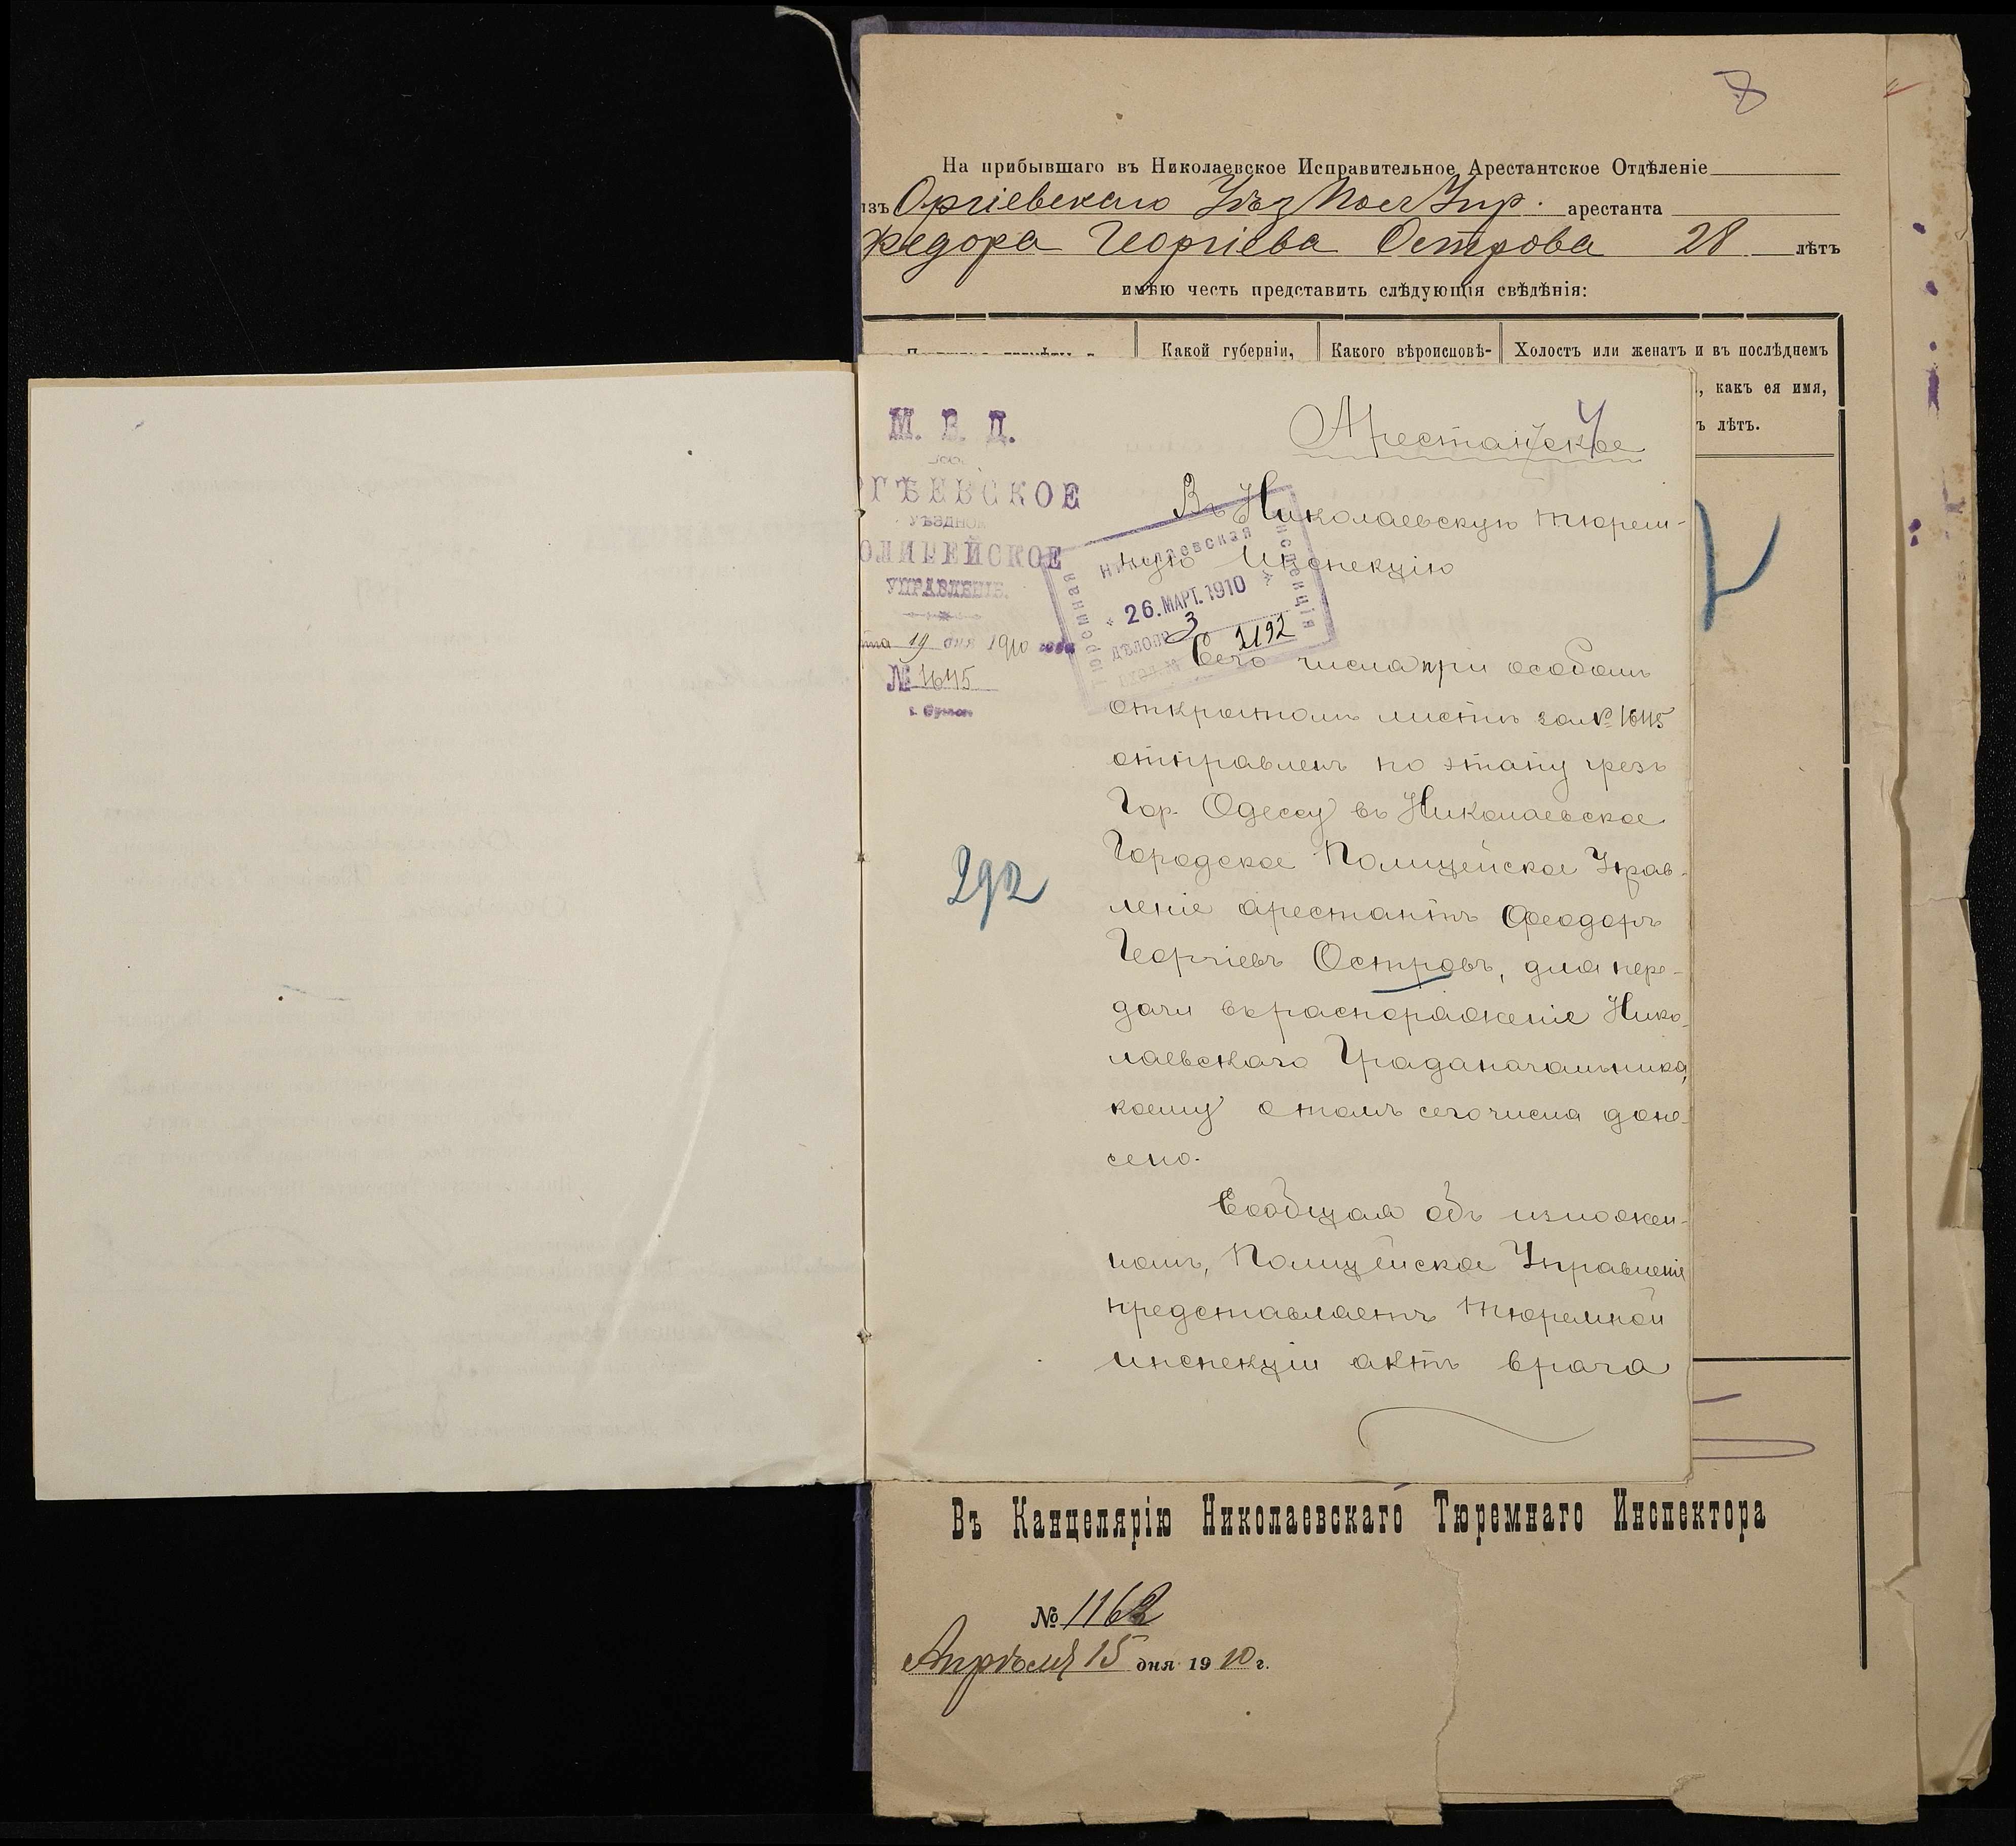 8
На прибывшаго въ Николаевское Исправительное Арестантское Отдѣленіе
изъ Оргіевскаго Уѣз Пол Упр. арестанта
Федора Георгіева Острова 28 лѣтъ
имѣю честь представить слѣдующія свѣдѣнія:
Какой губерніи, Какого вѣроисповѣ- Холостъ или женатъ и въ послѣднемъ
, какъ ея имя,
ъ лѣтъ.
М. В. Д.
РГѢЕВСКОЕ
УѢЗДНОЕ
ОЛИЦЕЙСКОЕ
УПРАВЛЕНІЕ.
та 19 дня 1910 года
№ 1645
4
Арестантское
Въ Николаевскую тюрем-
ную Инспекцію
Николаевская Тюремная Инспекція
26. МАРТ. 1910
ДѢЛОПР 3
2192
Сего числа при особомъ
открытомъ листѣ за № 1645
отправленъ по этапу чрезъ
Гор. Одессу въ Николаевское
Городское Полицейское Управ-
леніе арестантъ Феодоръ
Георгіевъ Островъ, для пере-
дачи въ распоряженіе Нико-
лаевскаго Градоначальника,
коему о томъ сего числа доне-
сено.
292
Сообщая объ изложен-
номъ, Полицейское Управленіе
представляетъ Тюремной
инспекціи актъ врача
Въ Канцелярію Николаевскаго Тюремнаго Инспектора
№ 1162
Апрѣля 15 дня 1910 г.